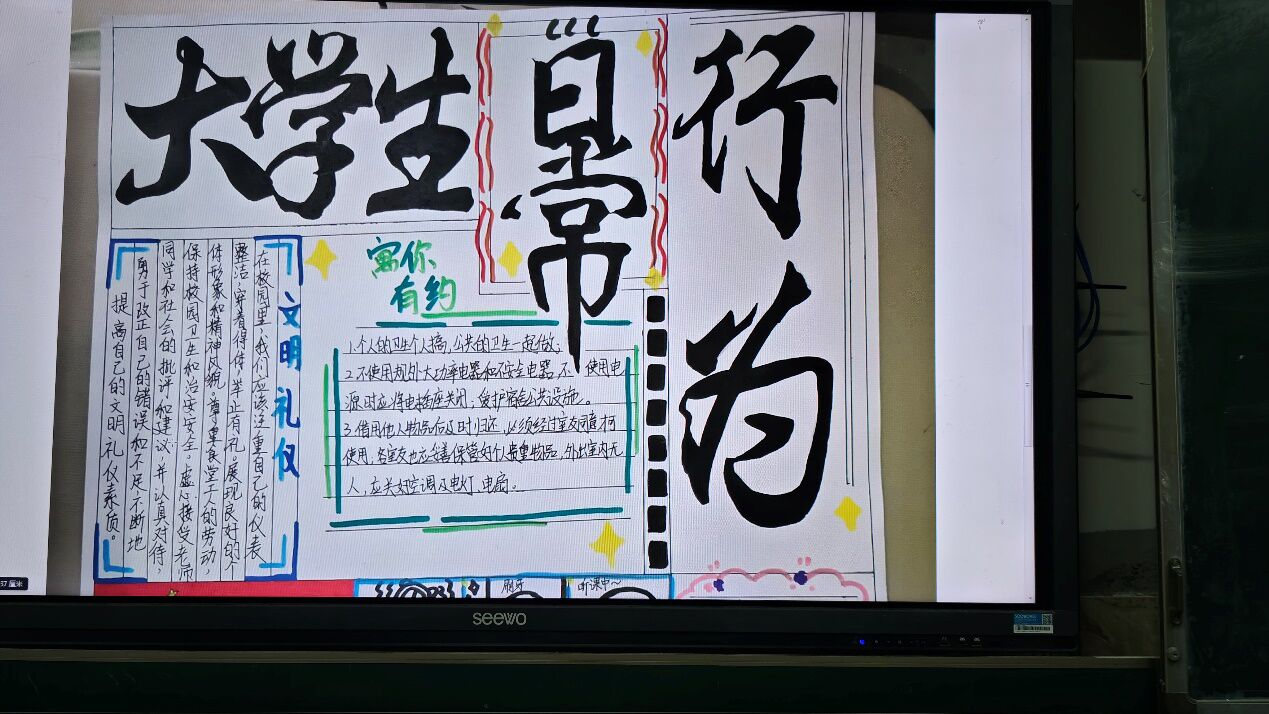 大学生
日常
行为
文明礼仪
在校园里,我们应该注重自己的仪表
整洁,穿着得体,举止有礼。展现良好的个
体形象和精神风貌,尊重食堂工人的劳动,
保持校园卫生和治安安全。虚心接受老师
同学和社会的批评和建议,并认真对待,
勇于改正自己的错误和不足,不断地
提高自己的文明礼仪素质。
寓你
有约
1.个人的卫生个人搞,公共的卫生一起做;
2.不使用规外大功率电器和不安全电器,不使用电
源时应将电插座关闭,爱护宿舍公共设施。
3.借用他人物品后及时归还,必须经过室友同意才可
使用,各室友也应妥善保管好个人贵重物品,外出室内无
人,应关好空调及电灯、电扇。
刷牙
听课中~
37 厘米
seewo